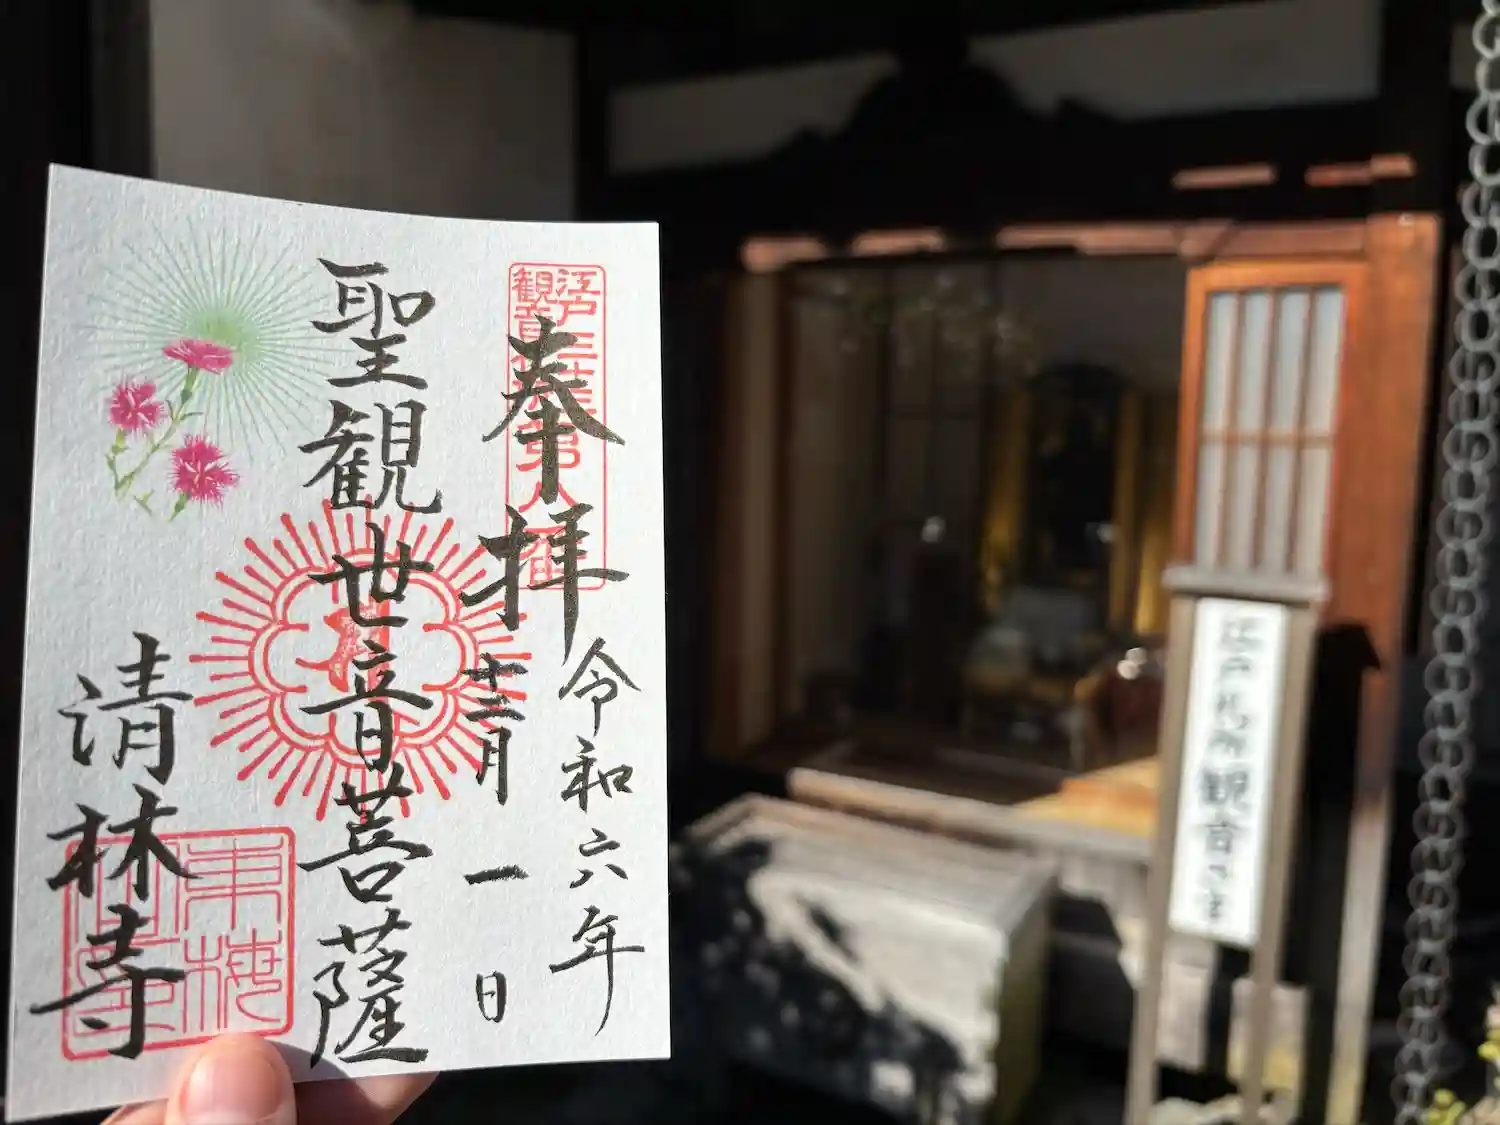 奉拝
令和六年
十二月一日
聖観世音菩薩
清林寺
江戸三十三
観音
第八番
江戸札所観音さま